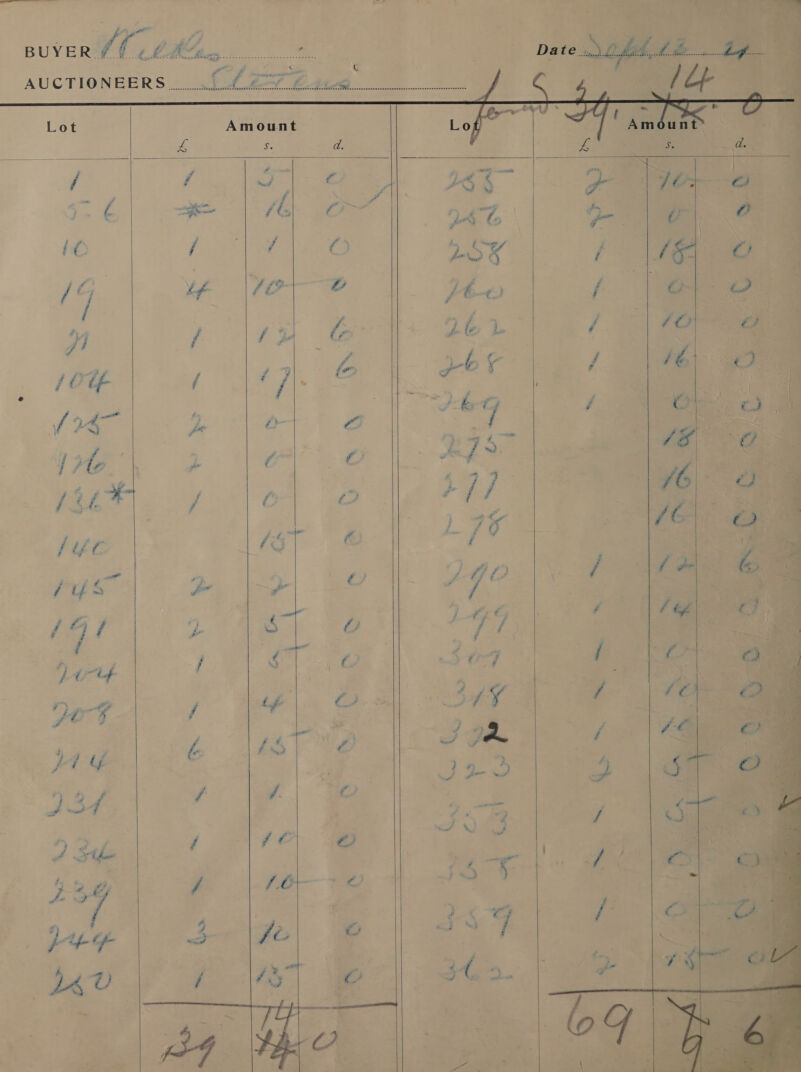 BUYER Wilkes Date Sept. 12 24
AUCTIONEERS Stevens
forwd. 39. 14 0
Lot Amount Lot Amount
£ s. d. £ s. d.
1 1 5 0
5-6 16 0
10 1 1 0
19 4 10 0
21 1 12 6
104 1 17 6
125 2 0 0
126 2 0 0
136* 1 0 0
140 15 0
145 2 2 0
191 2 5 0
204 1 5 0
208 1 4 0
214 6 15 0
231 1 1 0
234 1 10 0
239 1 10 0
244 3 10 0
250 1 15 0
39 14 0
255 2 10 0
256 2 0 0
258 1 18 0
260 1 0 0
262 1 10 0
268 1 16 0
269 1 0 0
275 18 0
277 16 0
278 16 0
290 1 12 6
299 1 14 0
309 1 0 0
318 1 10 0
322 1 10 0
323 2 5 0
353 1 5 0
358 1 0 0
359 1 0 0
362 2 15 0
69 9 6